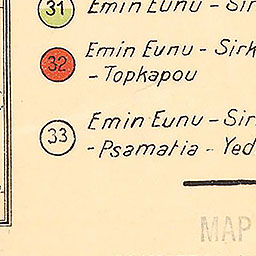 31 Emin Eunu - Sir
32 Emin Eunu - Sirk
- Topkapou
33 Emin Eunu - Sir
- Psamatia - Yed
MAP